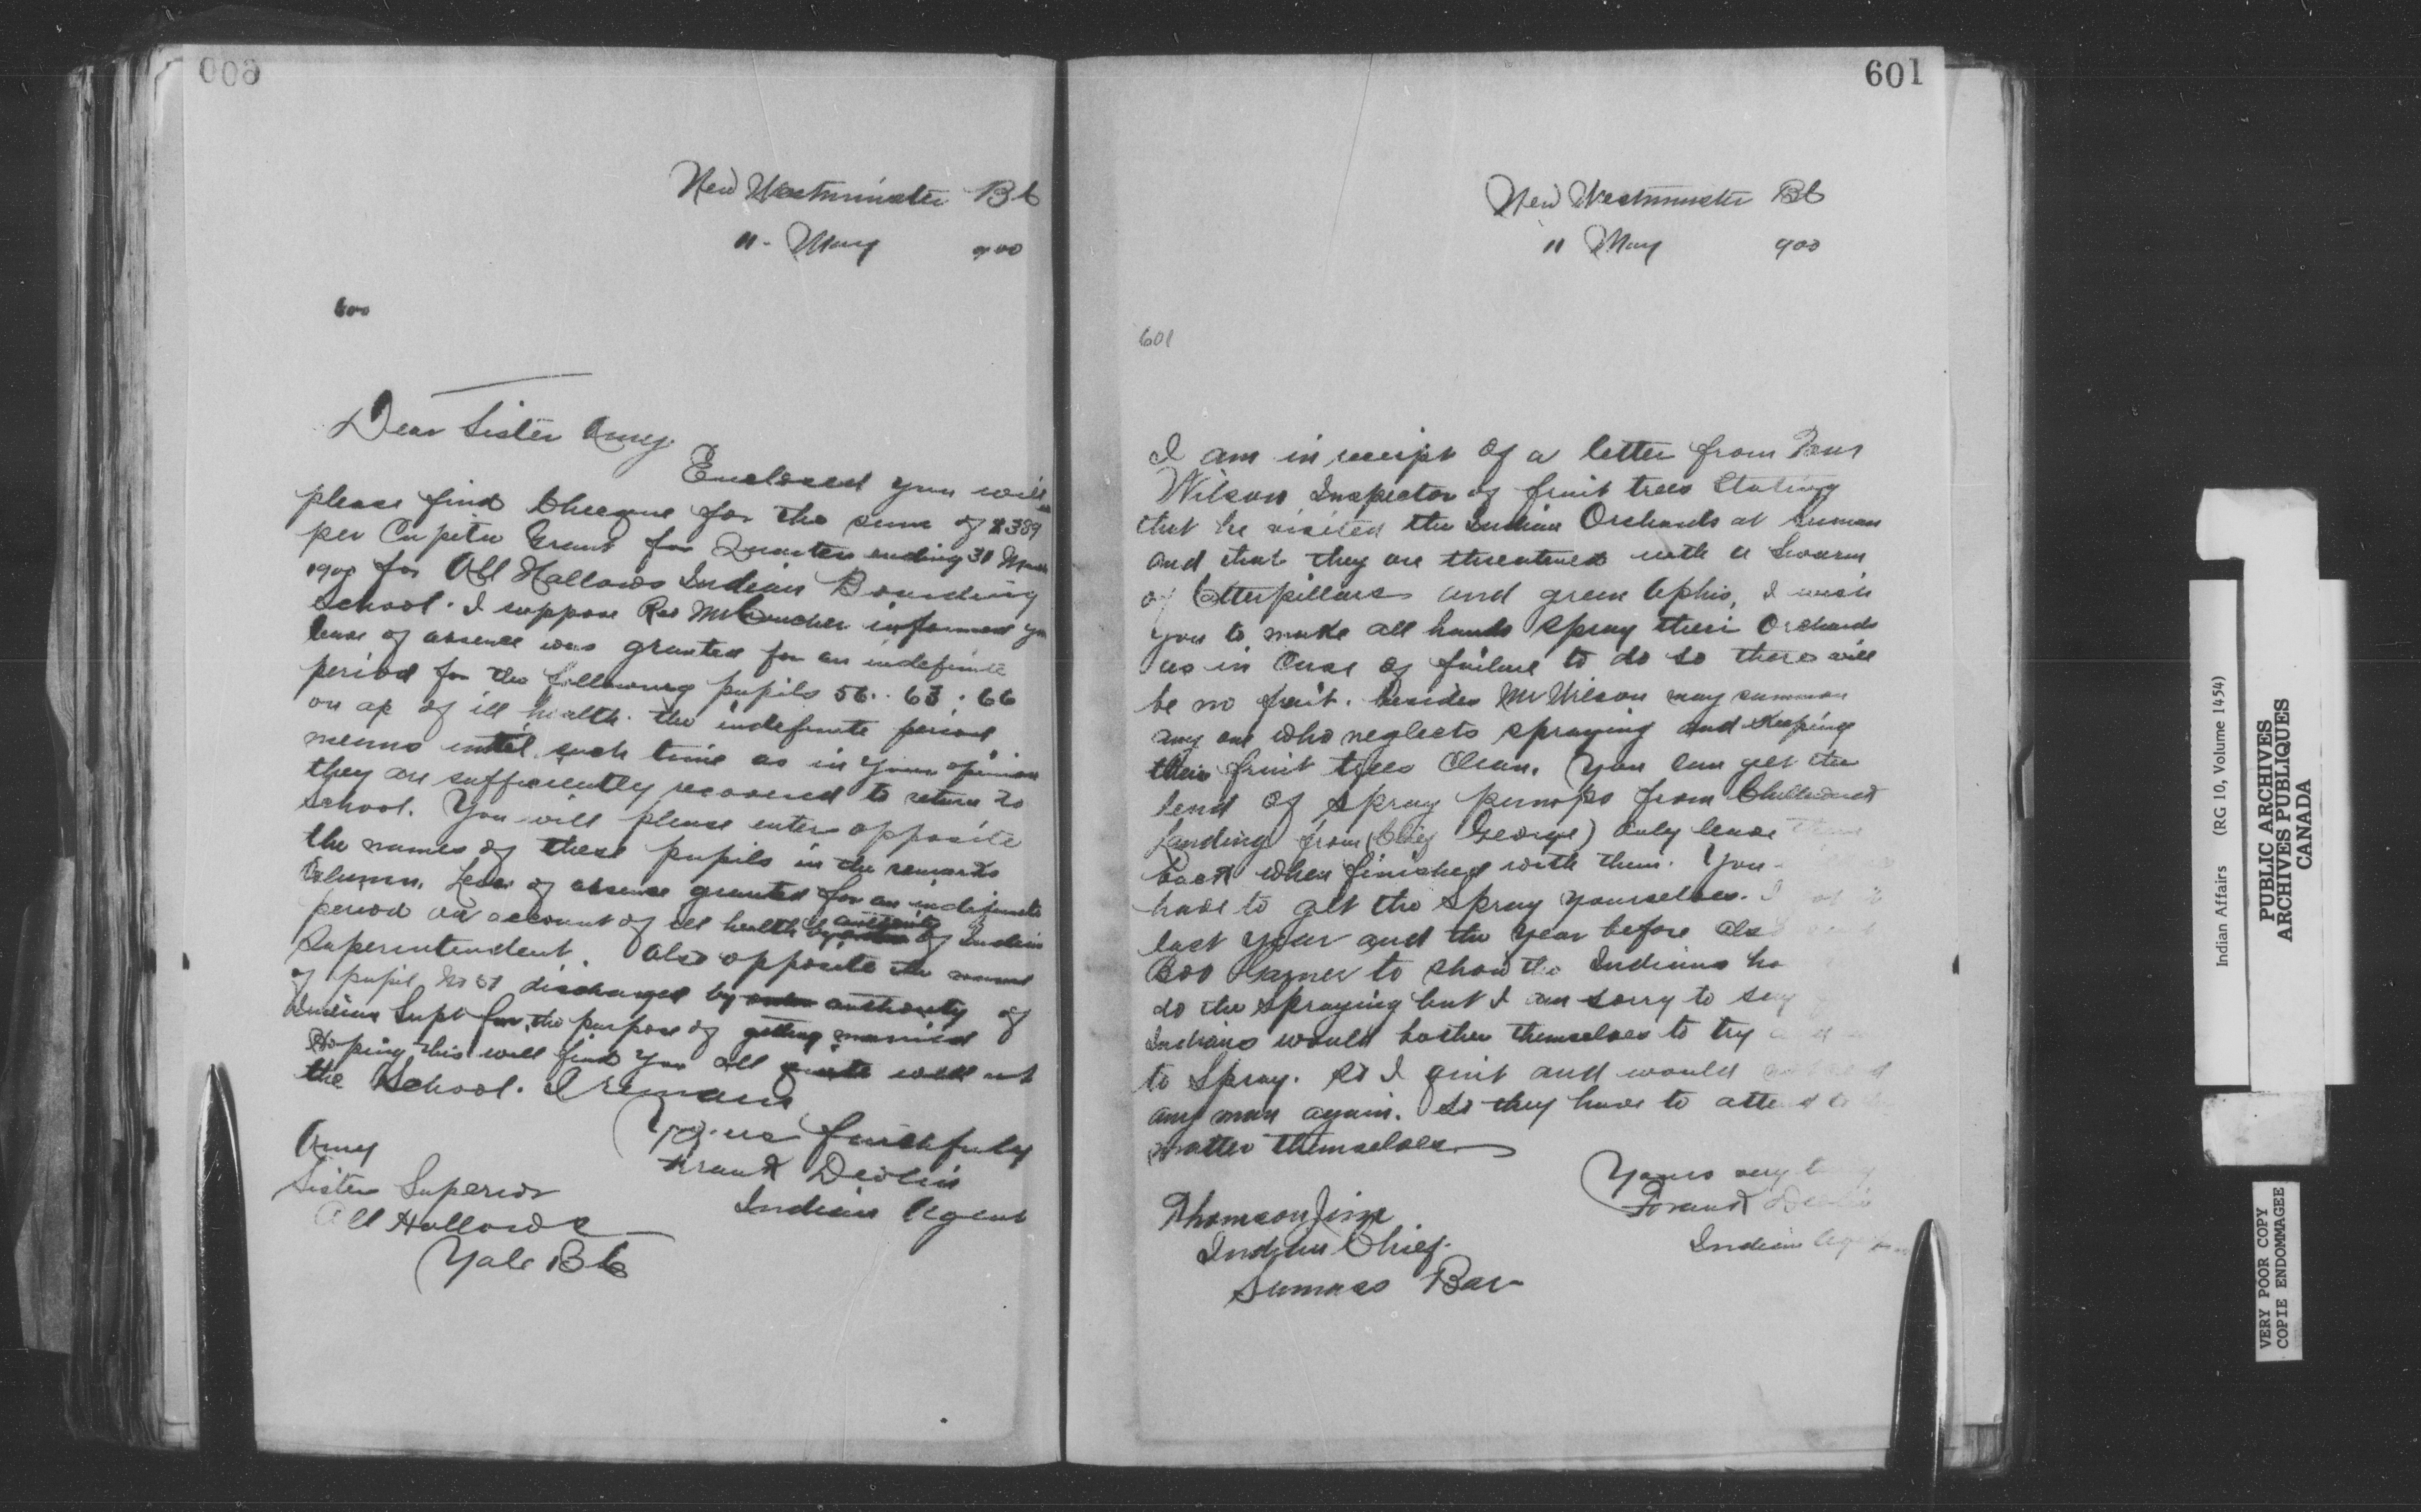 600
New Westminster BC
11 - May 900
600
Dear Sister Amy.
Enclosed you will
please find Cheque for the sum of $.389
per Capita Grant for Quarter ending 31 March
1900 for All Hallows Indian Boarding
School. I suppose Rev Mr Croucher informed you
leave of absence was granted for an indefinite
period for the following pupils 56. 63. 66
on a/c of ill health. the indefinite period
means until such time as in your opinion
they are sufficiently recovered to return to
School. You will please enter opposite
the names of these pupils in the remarks
Column. Leave of absence granted for an indefinite
period on account of ill health by authority of Indian
Superintendent. Also opposite the name
of pupil No 51 discharged by authority of
Indian Supt for the purpose of getting married
Hoping this will find you all quite well at
the School. I remain
Yours faithfully
Frank Devlin
Indian Agent
Amy
Sister Superior
All Hallows
Yale BC
601
New Westminster BC
11 May 900
601
I am in receipt of a letter from
Wilson Inspector of fruit trees Stating
that he visited the Indian Orchards at Sumas
and that they are threatened with a Swarm
of Catterpillars and green Aphis, I wish
you to make all hands spray their Orchards
as in Case of failure to do so there will
be no fruit. besides Mr Wilson may summon
any one who neglects spraying and Keeping
their fruit trees Clean. You can get the
lend of spray pumps from Chilliwack
Landing from (Chief George) Only leave them
back when finished with them. You
have to get the Spray yourselves. I
last year and the year before also
to show the Indians ho
do the spraying but I am sorry to say
Indians would bother themselves to try
to Spray. So I and would
any man again. So they have to attend to
matter themselves
Yours very truly
Frank Devlin
Indian Agent
Thomson Jim
Indian Chief.
Sumass Bar
Indian Affairs (RG 10, Volume 1454)
PUBLIC ARCHIVES
ARCHIVES PUBLIQUES
CANADA
VERY POOR COPY
COPIE ENDOMMAGEE